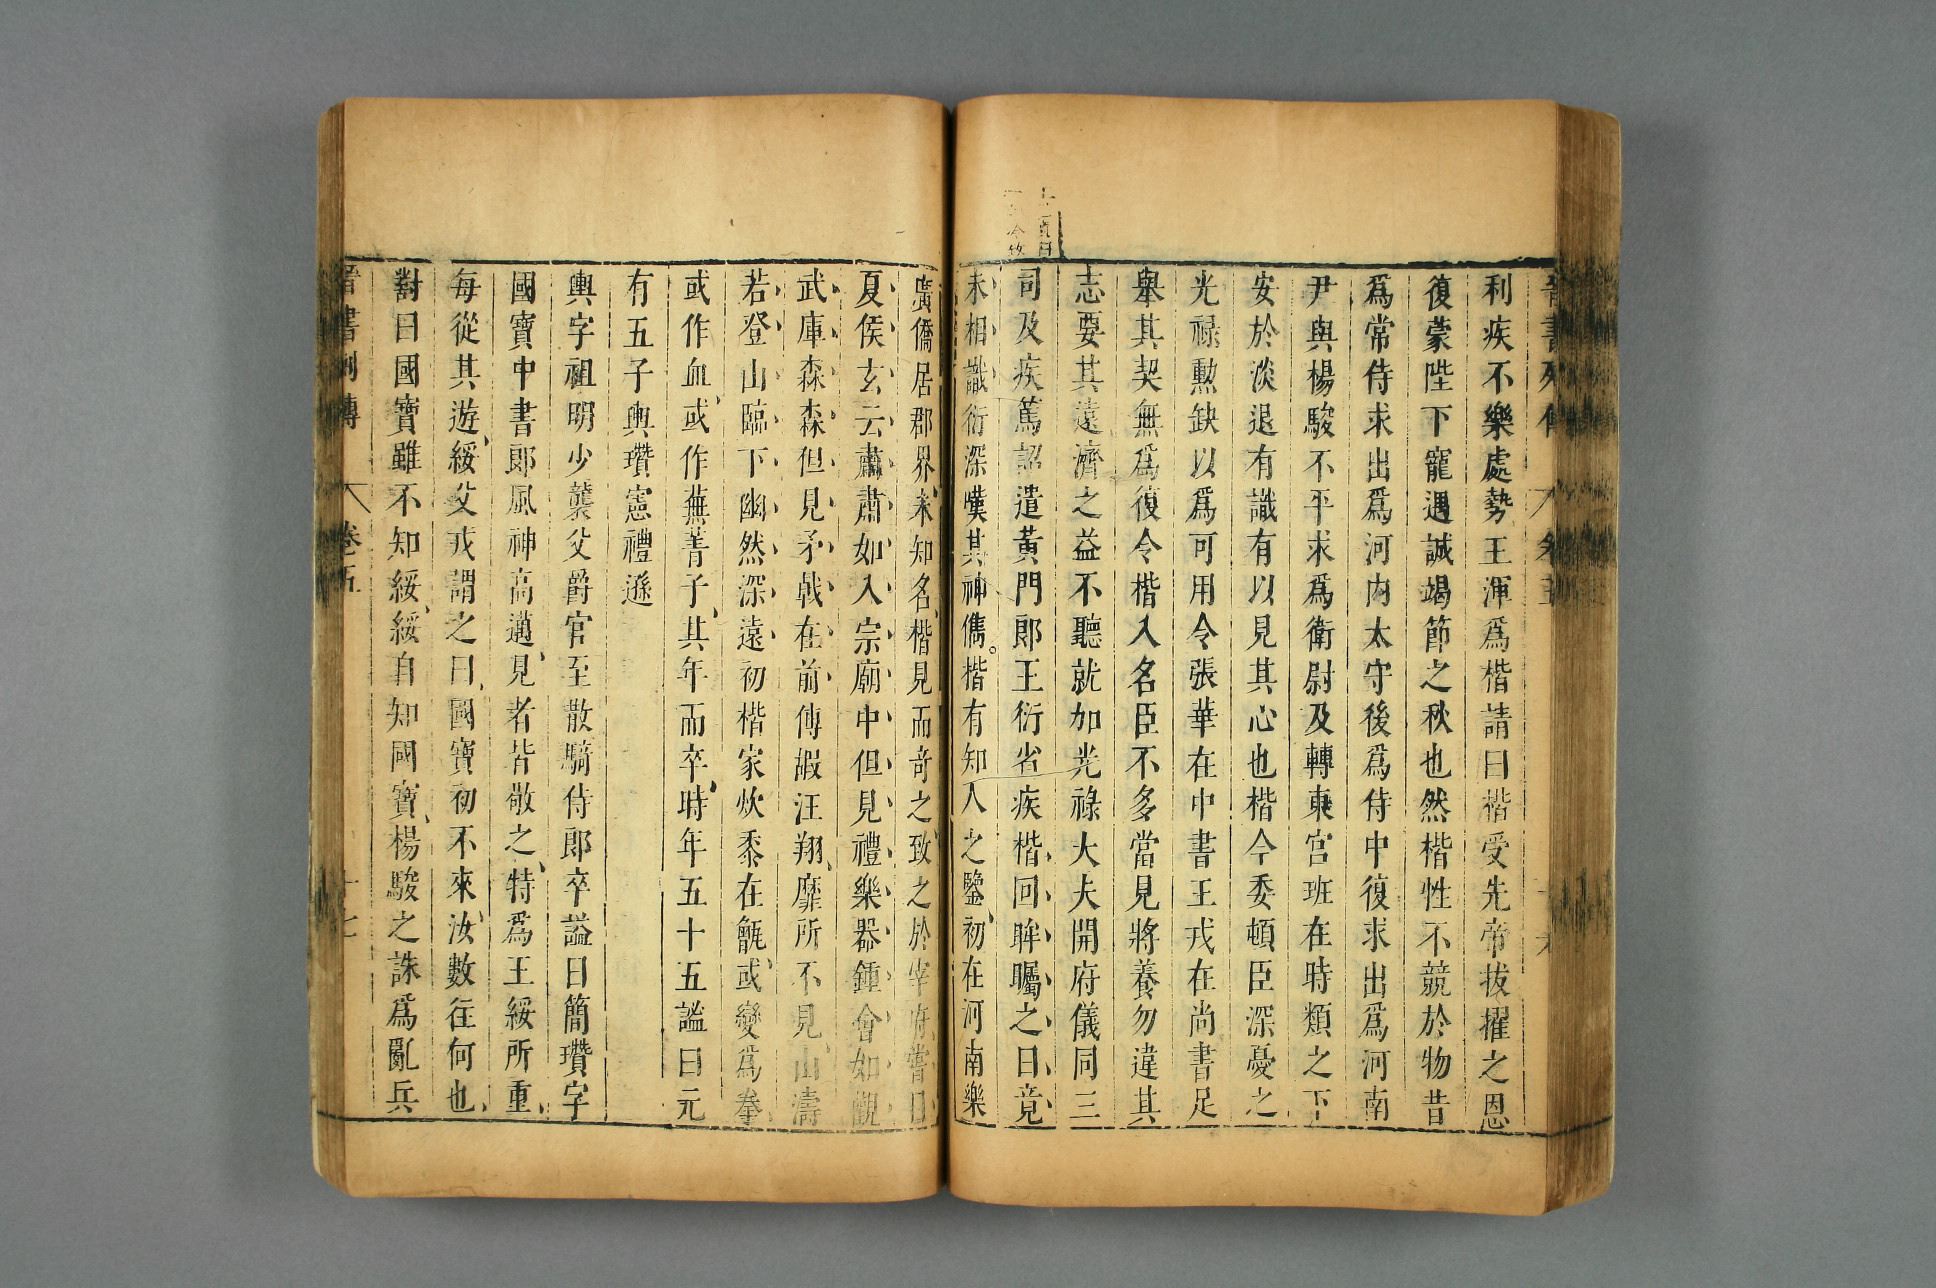 利疾不樂處勢王渾爲楷請曰楷受先帝拔擢之恩
復蒙陛下寵遇誠竭節之秋也然楷性不競於物昔
爲常侍求出爲河内太守後爲侍中復求出爲河南
尹與楊駿不平求爲衛尉及轉東宮班在時類之下
安於淡退有識有以見其心也楷今委頓臣深憂之
光祿勲缺以爲可用令張華在中書王戎在尚書足
舉其契無爲復令楷入名臣不多當見將養勿違其
志要其遠濟之益不聽就加光祿大夫開府儀同三
司及疾篤詔遣黃門郎王衍省疾楷回眸矚之曰竟
未相識衍深嘆其神儁。楷有知人之鑒初在河南樂
廣僑居郡界未知名楷見而奇之致之於宰府嘗曰
夏侯玄云肅肅如入宗廟中但見禮樂器鍾會如觀
武庫森森但見矛戟在前傅嘏汪翔靡所不見山濤
若登山臨下幽然深遠初楷家炊黍在甑或變爲拳
或作血或作蕪菁子其年而卒時年五十五謚曰元
有五子輿瓚憲禮遜
輿字祖明少襲父爵官至散騎侍郎卒謚曰簡瓚字
國寶中書郎風神高邁見者皆敬之特爲王綏所重
每從其遊綏父戎謂之曰國寶初不來汝數往何也
對曰國寶雖不知綏綏自知國寶楊駿之誅爲亂兵
晉書列傳 卷五 十七